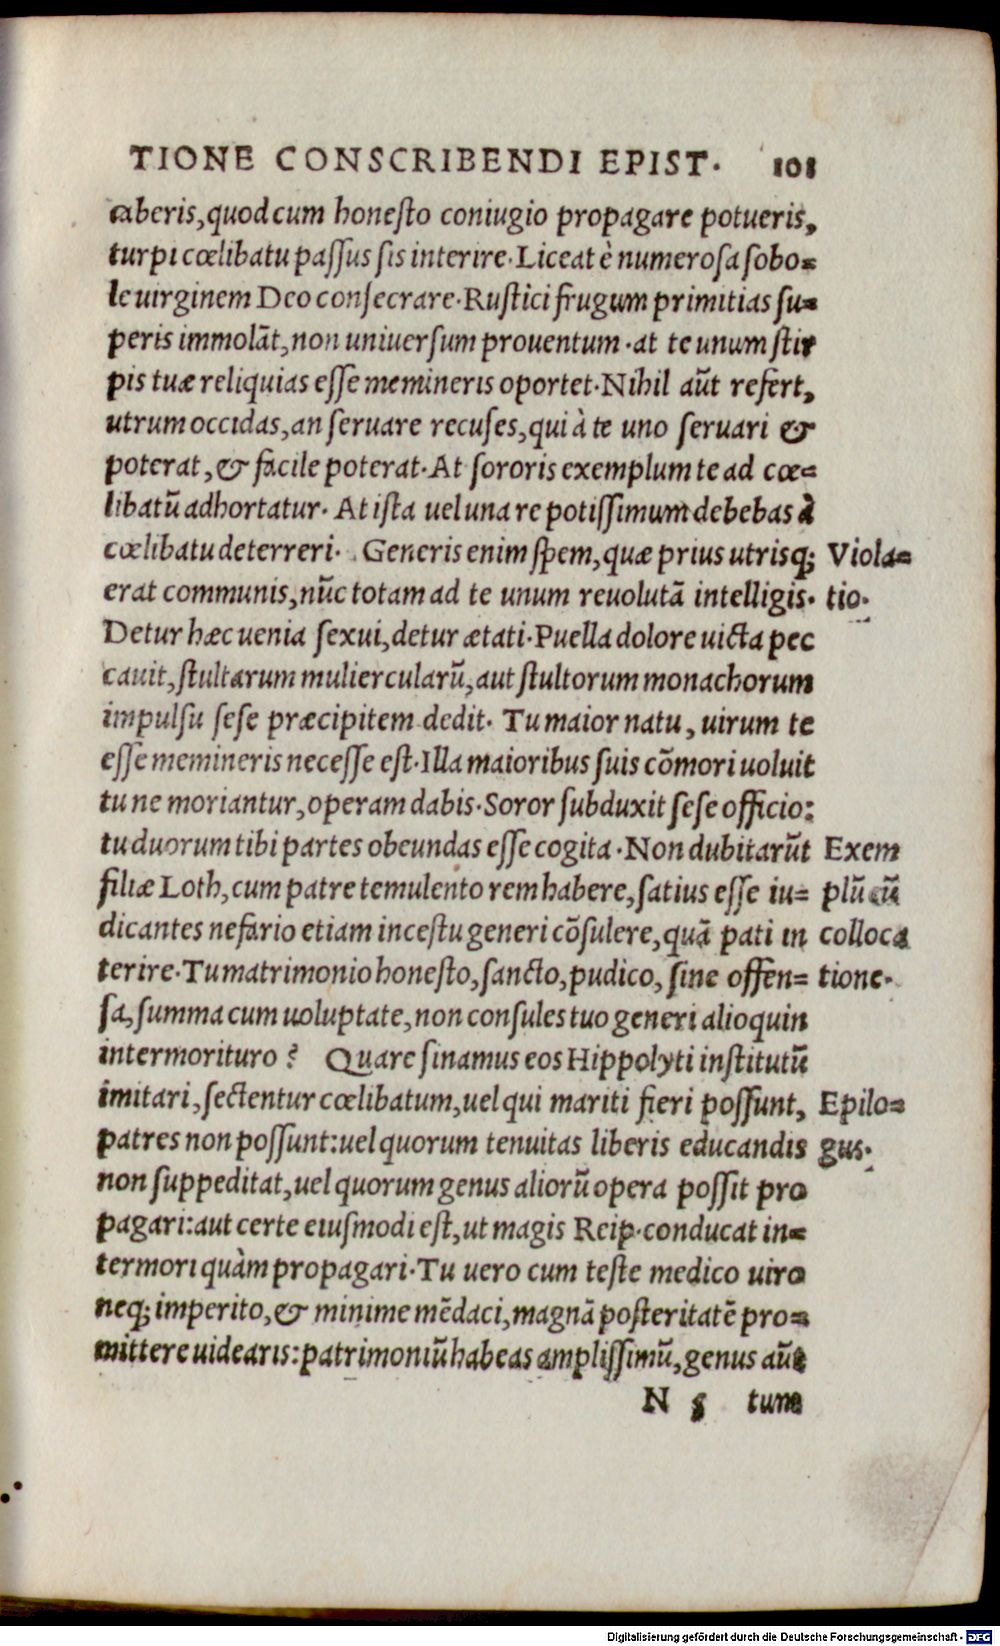 TIONE CONSCRIBENDI EPIST. 101
caberis, quod cum honeſto coniugio propagare potueris,
turpi cœlibatu paſſus ſis interire. Liceat è numeroſa ſobo=
le uirginem Deo conſecrare. Ruſtici frugum primitias ſu=
peris immolāt, non uniuerſum prouentum. at te unum ſtir
pis tuæ reliquias eſſe memineris oportet. Nihil aūt refert,
utrum occidas, an ſeruare recuſes, qui à te uno ſeruari &
poterat, & facile poterat. At ſororis exemplum te ad cœ=
libatū adhortatur. At iſta uel una re potiſſimum debebas à
cœlibatu deterreri. Generis enim ſpem, quæ prius utrisq; Viola=
erat communis, nūc totam ad te unum reuolutā intelligis. tio.
Detur hæc uenia ſexui, detur ætati. Puella dolore uicta pec
cauit, ſtultarum muliercularū, aut ſtultorum monachorum
impulſu ſeſe præcipitem dedit. Tu maior natu, uirum te
eſſe memineris neceſſe eſt. Illa maioribus ſuis cōmori uoluit
tu ne moriantur, operam dabis. Soror ſubduxit ſeſe officio:
tu duorum tibi partes obeundas eſſe cogita. Non dubitarūt Exem
filiæ Loth, cum patre temulento rem habere, ſatius eſſe iu= plū cū
dicantes nefario etiam inceſtu generi cōſulere, quā pati in colloca
terire. Tu matrimonio honeſto, ſancto, pudico, ſine offen= tione.
ſa, ſumma cum uoluptate, non conſules tuo generi alioquin
intermorituro? Quare ſinamus eos Hippolyti inſtitutū
imitari, ſectentur cœlibatum, uel qui mariti fieri poſſunt, Epilo=
patres non poſſunt: uel quorum tenuitas liberis educandis gus.
non ſuppeditat, uel quorum genus aliorū opera poſſit pro
pagari: aut certe eiuſmodi eſt, ut magis Reip. conducat in=
termori quàm propagari. Tu uero cum teſte medico uiro
neq; imperito, & minime mēdaci, magnā poſteritatē pro=
mittere uidearis: patrimoniū habeas ampliſſimū, genus aūt
N 5 tum
Digitalisierung gefördert durch die Deutsche Forschungsgemeinschaft - DFG